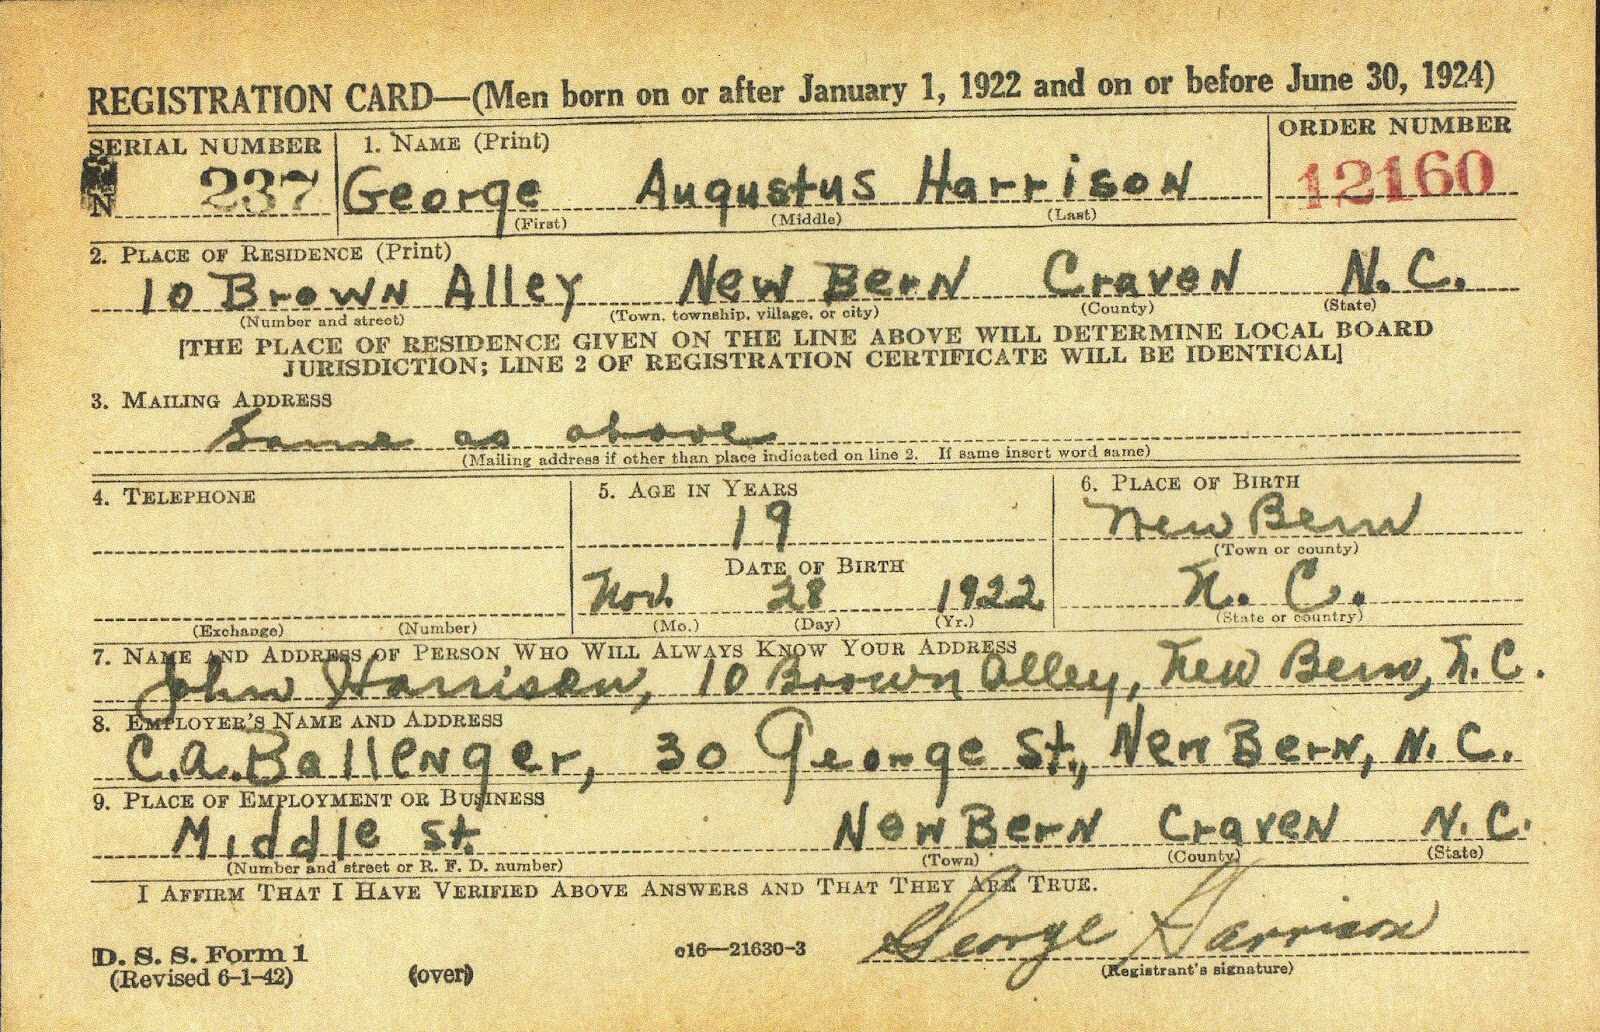 REGISTRATION CARD—(Men born on or after January 1, 1922 and on or before June 30, 1924)
SERIAL NUMBER 1. NAME (Print) ORDER NUMBER
N 237 George Augustus Harrison 12160
(First) (Middle) (Last)
2. PLACE OF RESIDENCE (Print)
10 Brown Alley New Bern Craven N.C.
(Number and street) (Town, township, village, or city) (County) (State)
[THE PLACE OF RESIDENCE GIVEN ON THE LINE ABOVE WILL DETERMINE LOCAL BOARD
JURISDICTION; LINE 2 OF REGISTRATION CERTIFICATE WILL BE IDENTICAL]
3. MAILING ADDRESS
Same as above
(Mailing address if other than place indicated on line 2. If same insert word same)
4. TELEPHONE 5. AGE IN YEARS 6. PLACE OF BIRTH
19 New Bern
(Town or county)
DATE OF BIRTH
Nov. 28 1922 N. C.
(Exchange) (Number) (Mo.) (Day) (Yr.) (State or country)
7. NAME AND ADDRESS OF PERSON WHO WILL ALWAYS KNOW YOUR ADDRESS
John Harrison, 10 Brown Alley, New Bern, N.C.
8. EMPLOYER'S NAME AND ADDRESS
C.A. Ballenger, 30 George St., New Bern, N.C.
9. PLACE OF EMPLOYMENT OR BUSINESS
Middle St. New Bern Craven N.C.
(Number and street or R. F. D. number) (Town) (County) (State)
I AFFIRM THAT I HAVE VERIFIED ABOVE ANSWERS AND THAT THEY ARE TRUE.
George Harrison
D. S. S. Form 1 c16—21630-3
(Revised 6-1-42) (over) (Registrant's signature)